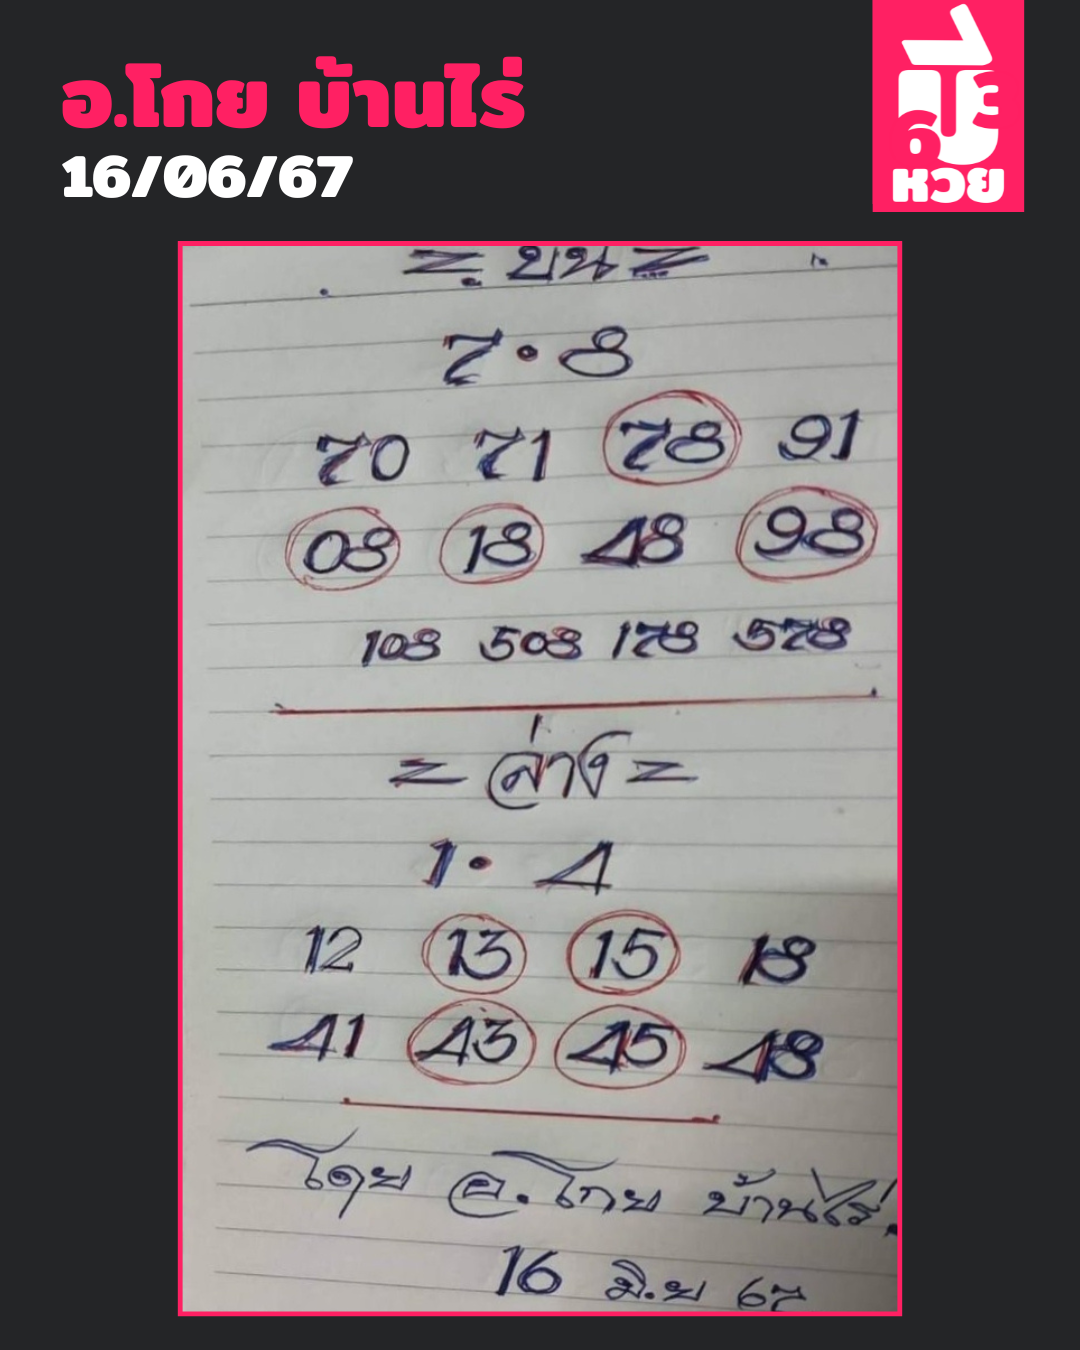 อ.โกย บ้านไร่
16/06/67
หวย
= บน =
7 • 8
70 71 78 91
08 18 48 98
108 508 178 578
= ล่าง =
1 • 4
12 13 15 18
41 43 45 48
โดย อ.โกย บ้านไร่.
16 มิ.ย 67